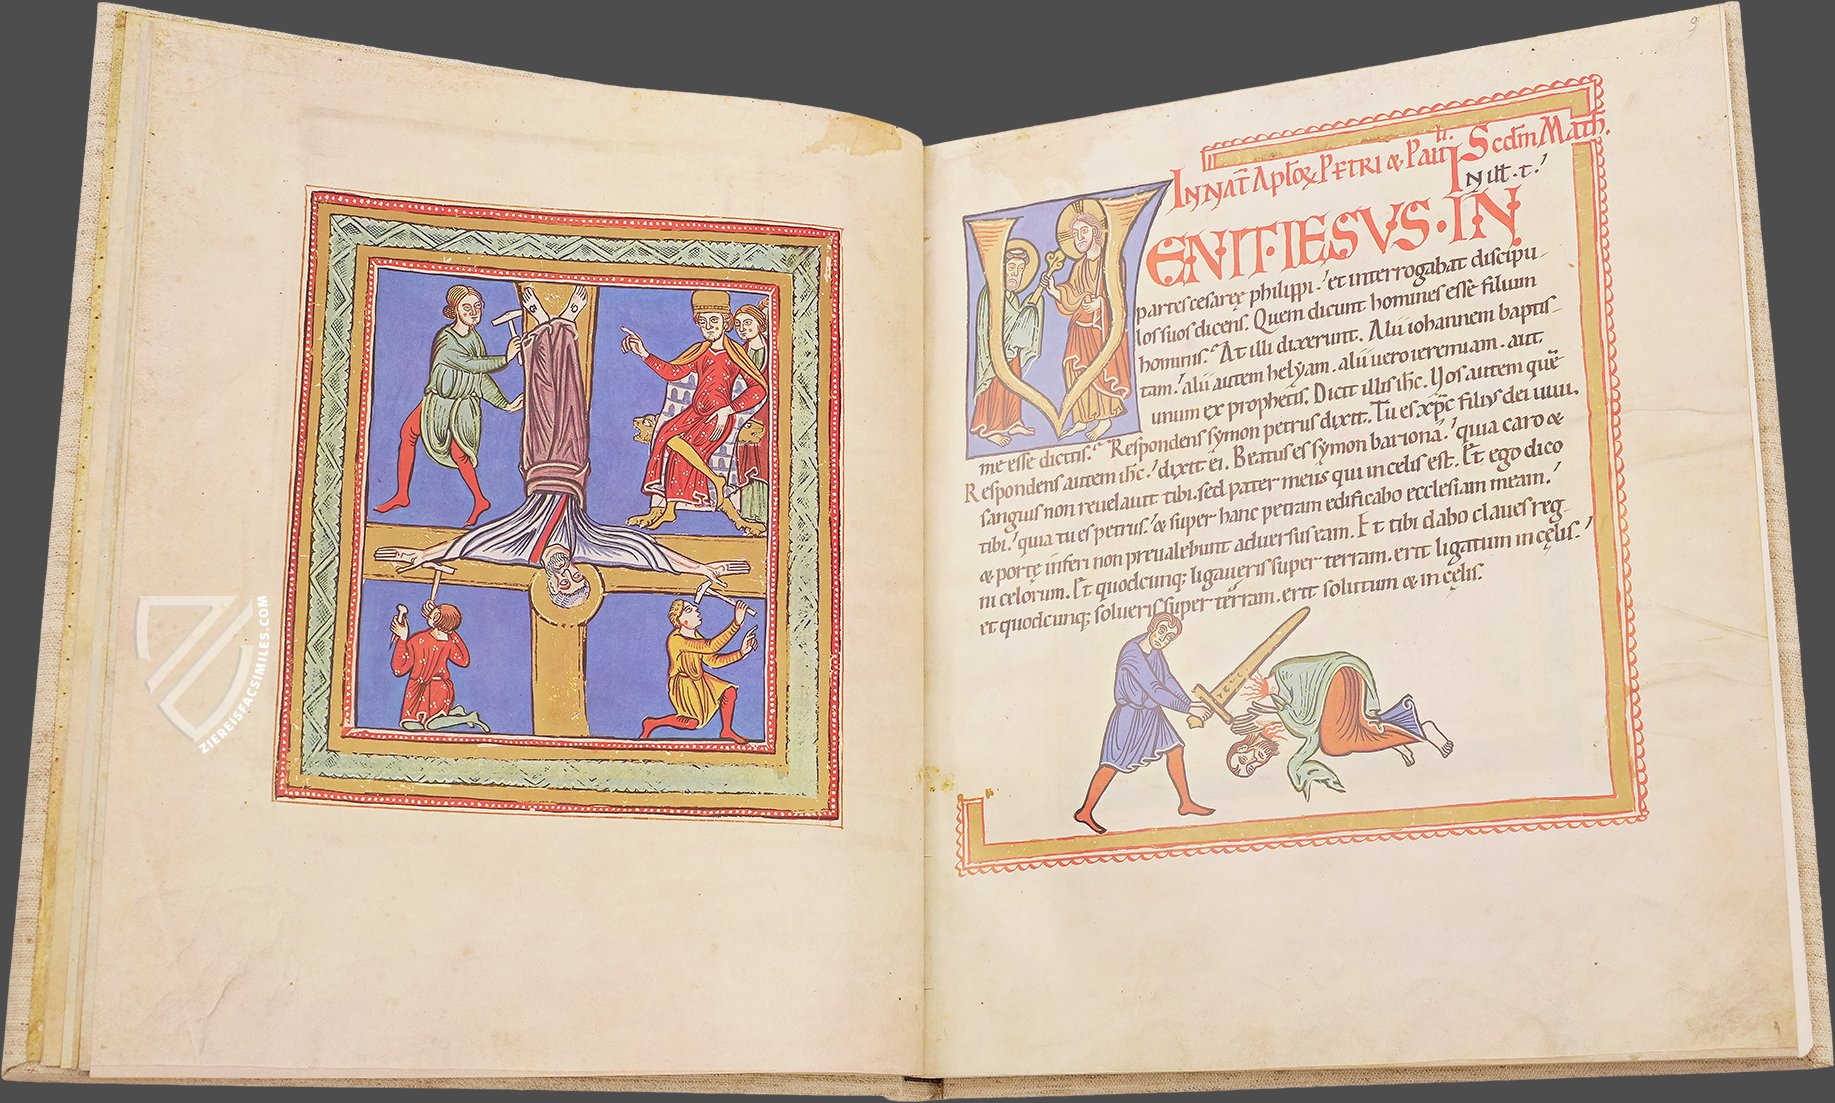 ZIEREISFACSIMILES.COM
9
IN NAT̄ APL̄OꝜ PETRI & PAULI. Scdm̄ Math.
IN ill. t.'
VENIT·IESVS·IN
partes cesaręę philippi.' et interrogabat discipu-
los suos dicens. Quem dicunt homines esse filium
hominis.' At illi dixerunt. Alii iohannem baptis-
tam.' alii autem helyam. alii uero ieremiam. aut
unum ex prophetis. Dicit illis ih̄c. Uos autem quē
me esse dicitis.' Respondens symon petrus dixit. Tu es xp̄c filius dei uiui.
Respondens autem ih̄c.' dixit ei. Beatus es symon bariona.' quia caro &
sanguis non reuelauit tibi. sed pater meus qui in celis est. Et ego dico
tibi.' quia tu es petrus.' & super hanc petram edificabo ecclesiam meam.'
& portę inferi non preualebunt aduersus eam. Et tibi dabo claues reg-
ni celorum. Et quodcunq; ligaueris super terram. erit ligatum in cęlis.'
et quodcunq; solueris super terram. erit solutum & in cęlis.